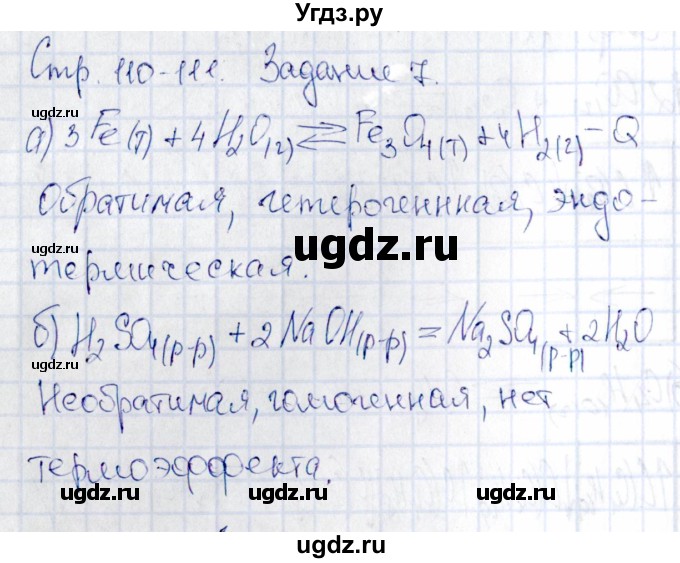 Угдз.ру
Стр. 110-111. Задание 7.
ugdz.ru ugdz.ru
а) 3Fe(т) + 4H₂O(г) ⇄ Fe₃O₄(т) + 4H₂(г) – Q
Обратимая, гетерогеннная, эндо-
ugdz.ru
термическая.
ugdz.ru ugdz.ru
б) H₂SO₄(р-р) + 2NaOH(р-р) = Na₂SO₄(р-р) + 2H₂O
Необратимая, гомогенная, нет
термоэффекта.
ugdz.ru ugdz.ru
ugdz.ru